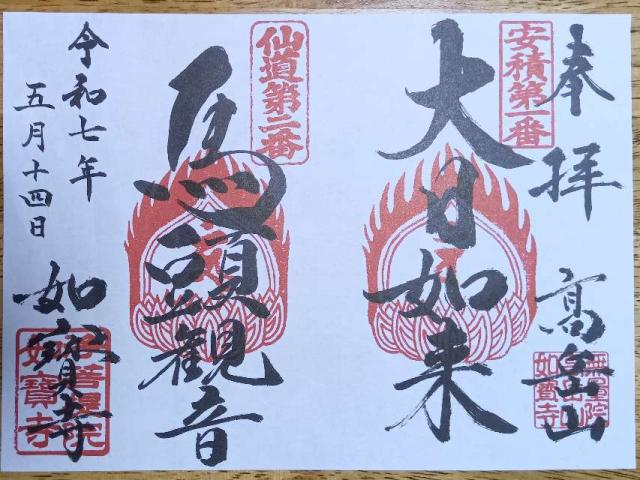 奉拝
高岳山
安積第一番
大日如来
仙道第二番
馬頭観音
令和七年
五月十四日
如宝寺
如寶寺